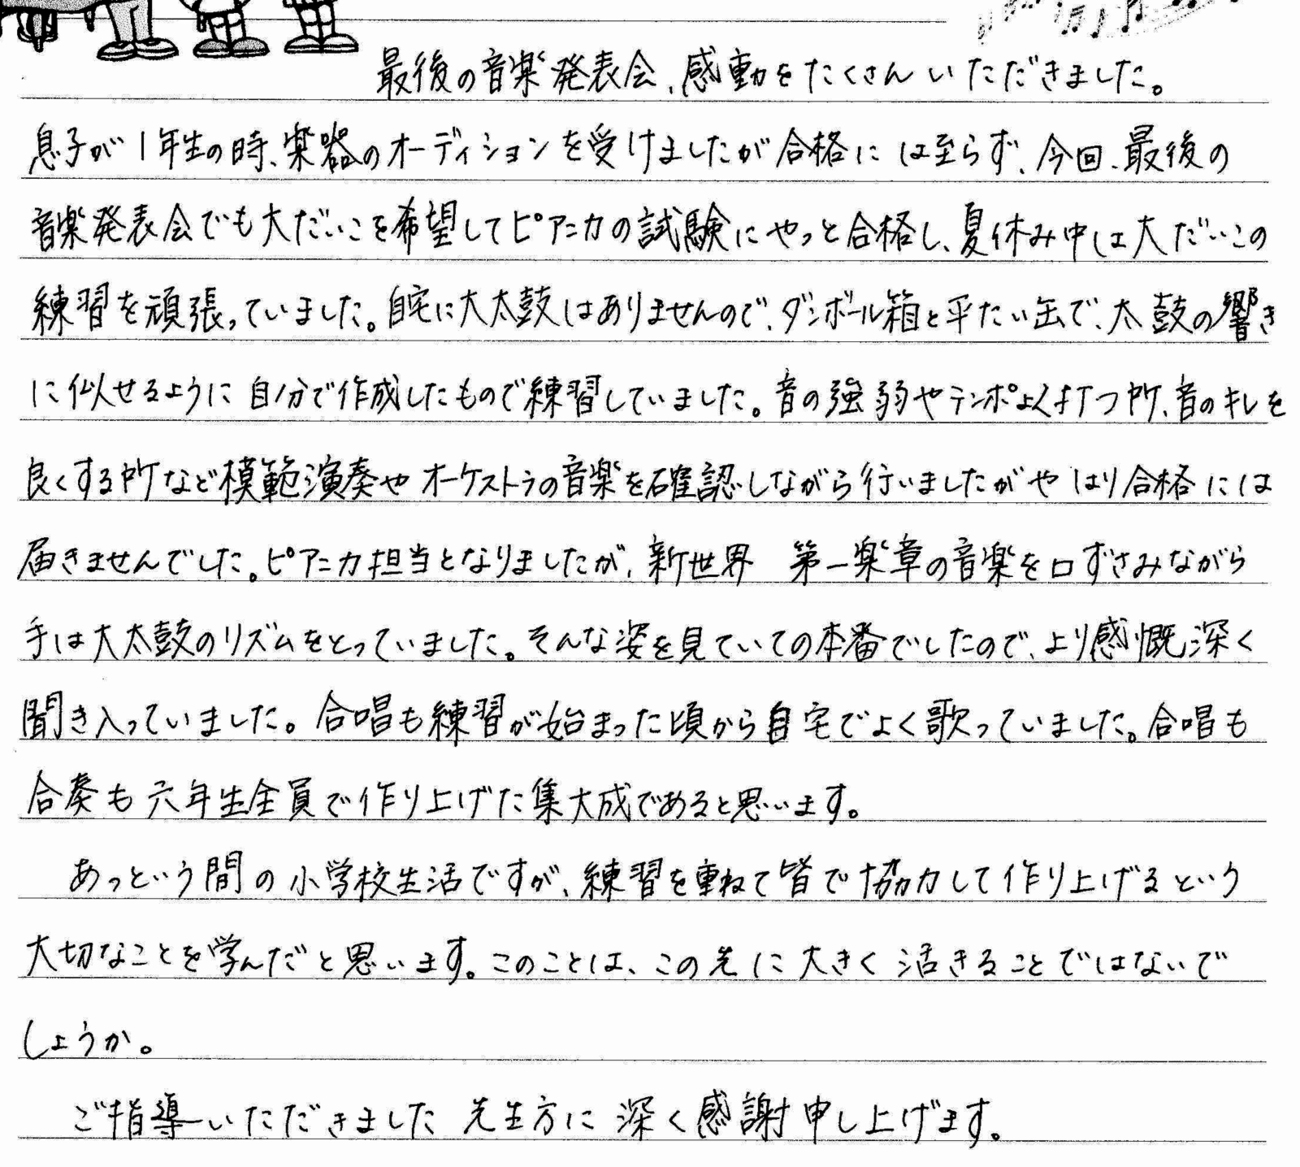 最後の音楽発表会、感動をたくさんいただきました。
息子が1年生の時、楽器のオーディションを受けましたが合格には至らず、今回、最後の
音楽発表会でも大だいこを希望してピアニカの試験にやっと合格し、夏休み中は大だいこの
練習を頑張っていました。自宅に大太鼓はありませんので、ダンボール箱と平たい缶で、太鼓の響き
に似せるように自分で作成したもので練習していました。音の強弱やテンポよく打つ所、音のキレを
良くする所など模範演奏やオーケストラの音楽を確認しながら行いましたがやはり合格には
届きませんでした。ピアニカ担当となりましたが、新世界 第一楽章の音楽を口ずさみながら
手は大太鼓のリズムをとっていました。そんな姿を見ていての本番でしたので、より感慨深く
聞き入っていました。合唱も練習が始まった頃から自宅でよく歌っていました。合唱も
合奏も六年生全員で作り上げた集大成であると思います。
あっという間の小学校生活ですが、練習を重ねて皆で協力して作り上げるという
大切なことを学んだと思います。このことは、この先に大きく活きることではないで
しょうか。
ご指導いただきました先生方に深く感謝申し上げます。